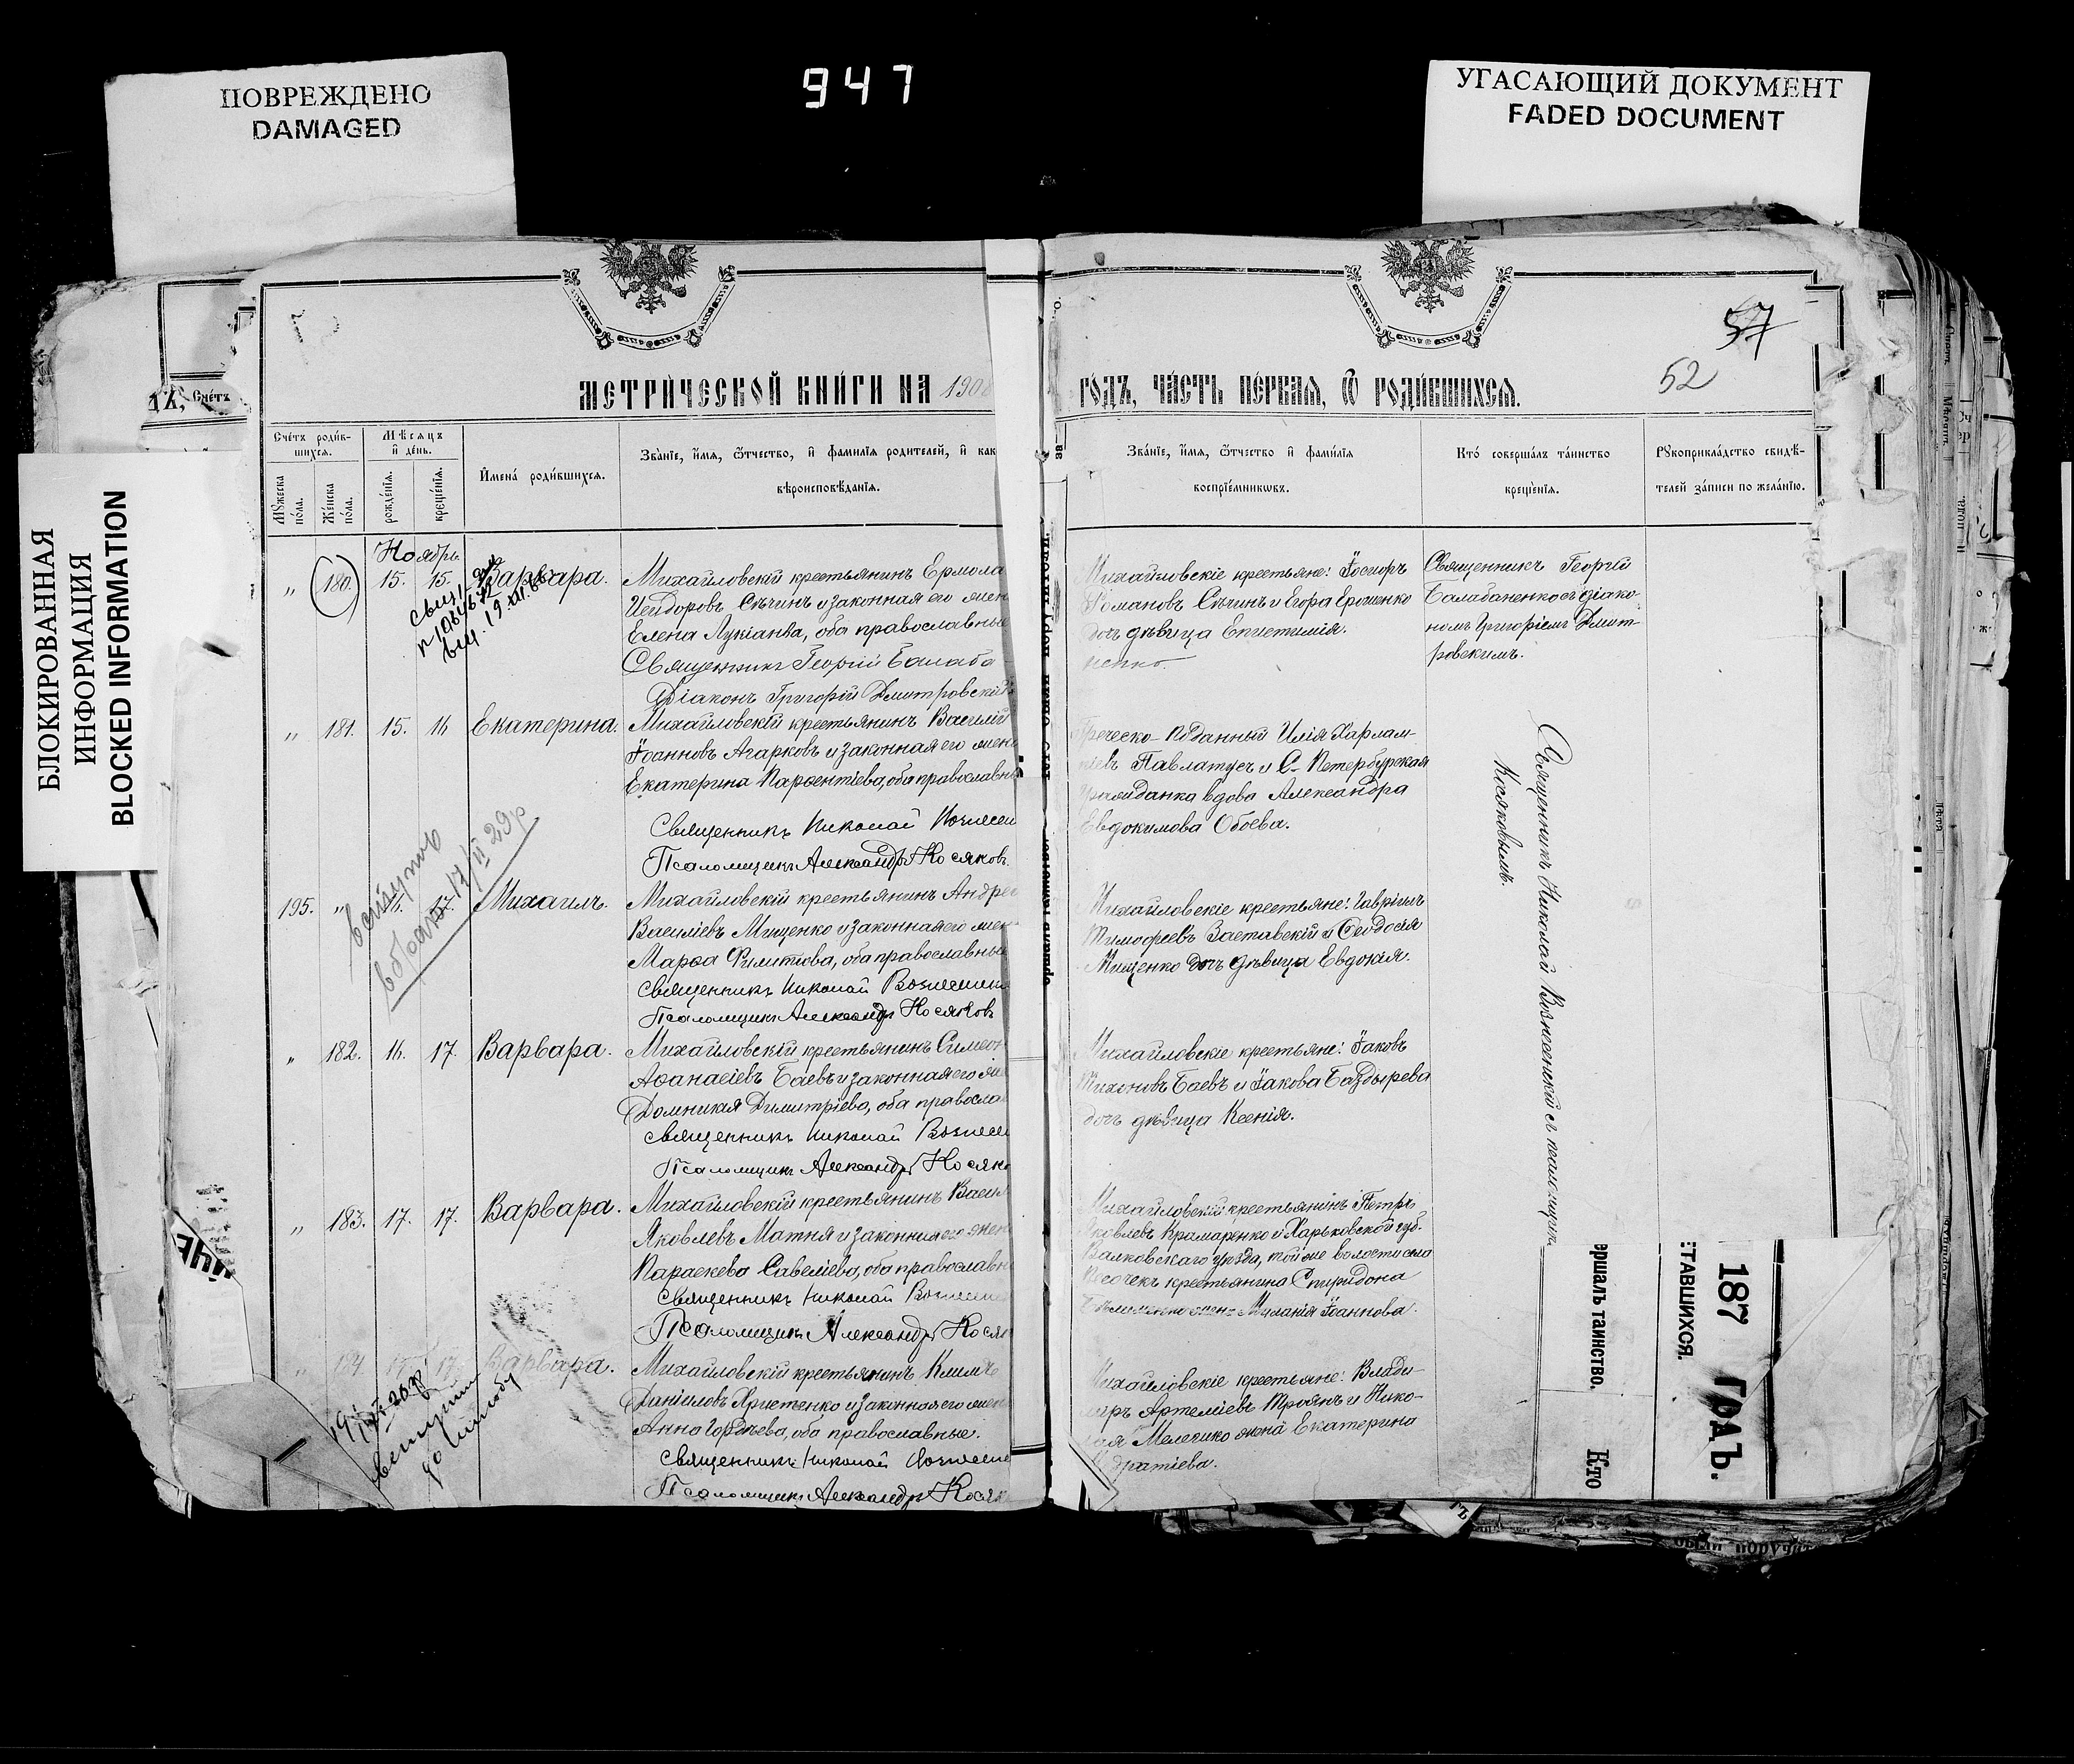 947
ПОВРЕЖДЕНО
DAMAGED
УГАСАЮЩИЙ ДОКУМЕНТ
FADED DOCUMENT
БЛОКИРОВАННАЯ
ИНФОРМАЦИЯ
BLOCKED INFORMATION
57
52
МЕТРИЧЕСКОЙ КНИГИ НА 190
ГОДЪ, ЧАСТЬ ПЕРВАЯ, Ѿ РОДИВШИХСЯ.
Счетъ
Счетъ родив-
шихся.
Мужеска
пола.
Женска
пола.
Мѣсяцъ
и день.
рожденія.
крещенія.
Имена родившихся.
Званіе, имя, ѿтчество, и фамилія родителей, и как
вѣроисповѣданія.
Званіе, имя, ѿтчество и фамилія
воспріемниковъ.
Кто совершалъ таинство
крещенія.
Рукоприкладство свидѣ-
телей записи по желанію.
Ноябрь
„ 180. 15. 15. Варвара.
Михайловскій крестьянинъ Ермола
Исидоровъ Сѣчинъ и законная его жен
Елена Лукіанва, оба православные
Священникъ Георгій Балаба
Діаконъ Григорій Дмитровскій
Михайловскіе крестьяне: Іосифъ
Романовъ Сѣчинъ и Егора Ерошенко
дочъ дѣвица Епистимія.
ненко.
Священникъ Георгій
Балабаненко съ діако-
номъ Григоріемъ Дмит-
ровскимъ.
„ 181. 15. 16 Екатерина.
Михайловскій крестьянинъ Василій
Іоанновъ Агарковъ и законная его жен
Екатерина Парѳентіева, оба православн
Священникъ Николай
Псаломщикъ Александръ Косяковъ.
Греческо-подданный Илія Харлам-
піевъ Павлатусъ и С-Петербурская
гражданка вдова Александра
Евдокимова Обоева.
Священникъ Николай Вознесенскій съ псаломщик.
Косяковымъ.
195. „ 16. 17. Михаилъ.
Михайловскій крестьянинъ Андре
Василіевъ Мищенко и законная его жен
Марѳа Филиппова, оба православные
Священникъ Николай Вознесенск
Псаломщикъ Александръ Косяков
Михайловскіе крестьяне: Гавріилъ
Тимоѳеевъ Заставскій и Ѳеодосія
Мищенко дочъ дѣвица Евдокія.
„ 182. 16. 17. Варвара.
Михайловскій крестьянинъ Симеон
Аѳанасіевъ Баевъ и законная его же
Домникія Димитріева, оба правосла
Священникъ Николай Вознесе
Псаломщикъ Александръ Косяко
Михайловскіе крестьяне: Іаковъ
Тихоновъ Баевъ и Іакова Баздырева
дочъ дѣвица Ксенія.
„ 183. 17. 17. Варвара.
Михайловскій крестьянинъ Васил
Яковлевъ Матня и законная его жен
Параскева Савеліева, оба православн
Священникъ Николай Вознесе
Псаломщикъ Александръ Косяк
Михайловскій крестьянинъ Петръ
Яковлевъ Крамаренко и Харьковской губ.
Валковскаго уѣзда, той же волости села
Песочекъ крестьянина Спиридона
жена Миланія Іоаннова.
„ 184 17. 17. Варвара.
Михайловскій крестьянинъ Климъ
Даніиловъ Христенко и законная его жен
Анна Гордѣева, оба православные.
Священникъ Николай Вознесе
Псаломщикъ Александръ Косяк
Михайловскіе крестьяне: Влади-
міръ Артеміевъ Троянъ и Нико-
лая Мелешко жена Екатерина
дратіева.
ершалъ таинство.
Кто
ТАВШИХСЯ.
187 ГОДЪ.